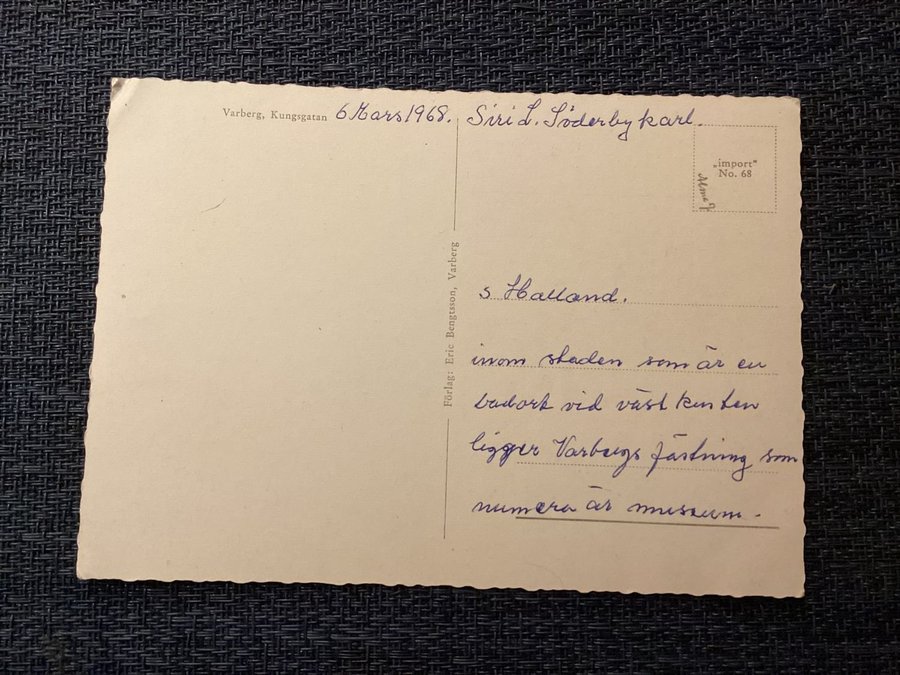 Varberg, Kungsgatan 6 Mars 1968. Siri L. Söderbykarl.
„import"
No. 68
s Halland.
Förlag: Eric Bengtsson, Varberg
inom staden som är en
badort vid väst kusten
ligger Varbergs fästning som
numera är museum.